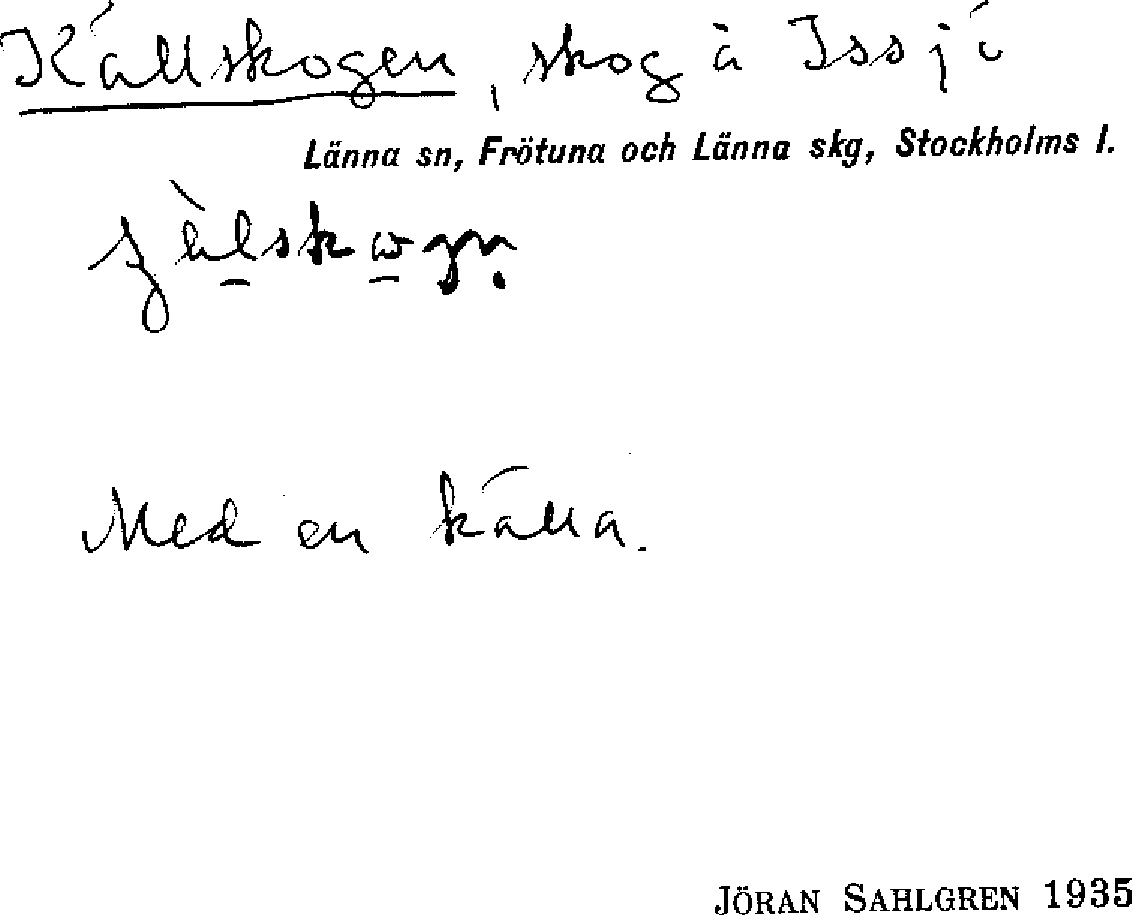 Källskogen, skog å Issjö
Länna sn, Frötuna och Länna skg, Stockholms l.
Med en källa.
JÖRAN SAHLGREN 1935